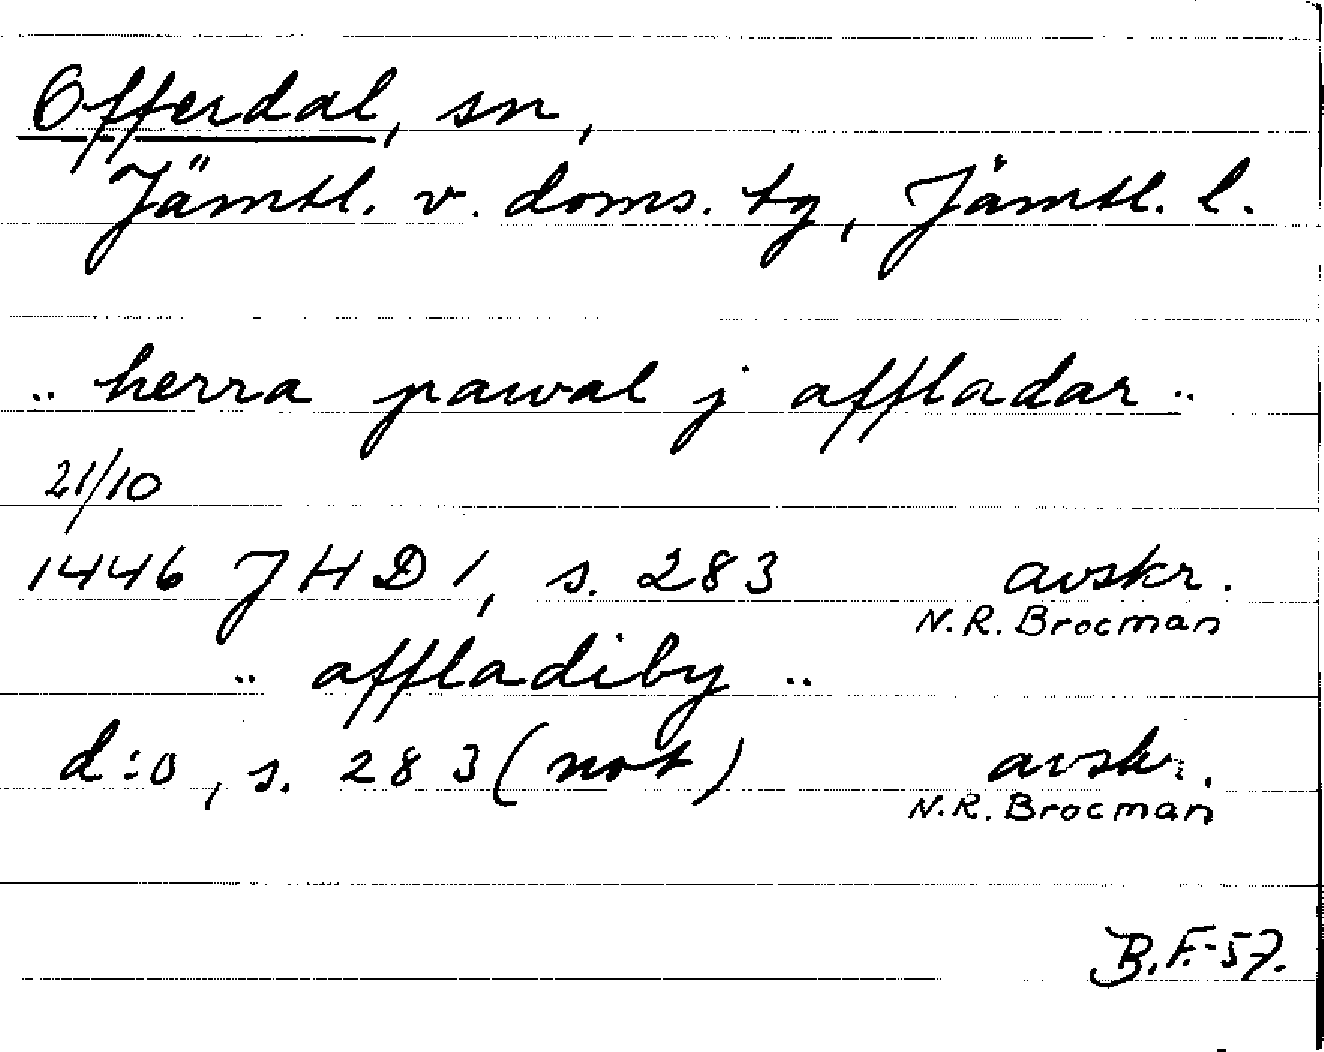 Offerdal, sn,
Jämtl. v. doms. tg, Jämtl. l.
.. herra pawal j affladar ..
21/10
1446 JHD 1, s. 283 avskr.
N.R. Brocman
.. affladiby ..
d:o, s. 283 (not) avskr.
N.R. Brocman
B.F.-57.